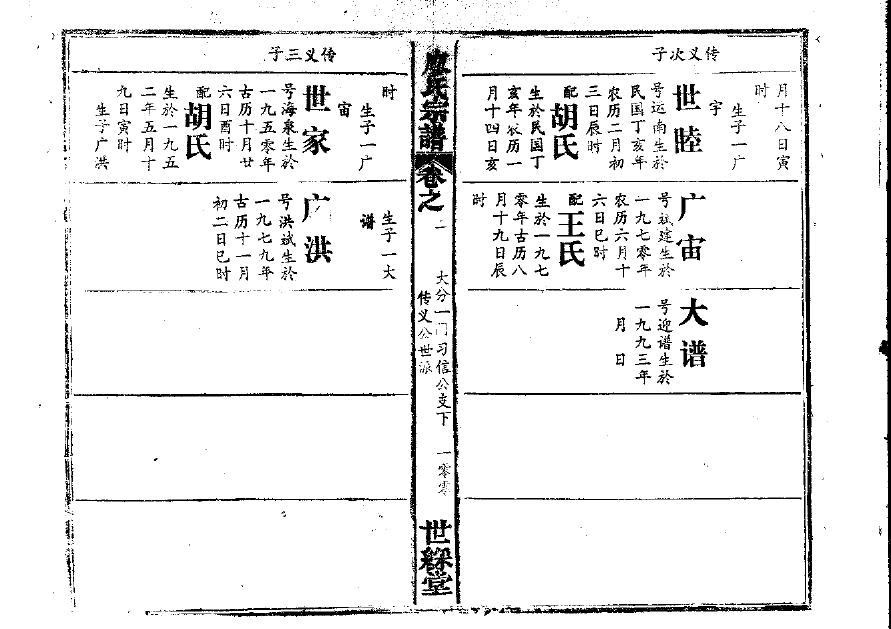 传义次子
月十八日寅
时
生子一广
宇
世睦
号运南生於
民国丁亥年
农历二月初
三日辰时
配
胡氏
生於民国丁
亥年农历一
月十四日亥
时
生子一广
宙
广宙
号斌建生於
一九七零年
农历六月十
六日巳时
配
王氏
生於一九七
零年古历八
月十九日辰
时
生子一大
谱
大谱
号迎谱生於
一九九三年
月 日
廖氏宗譜
卷之
二
大分一门习信公支下
传义公世派
一零零
世綵堂
传义三子
世家
号海泉生於
一九五零年
古历十月廿
六日酉时
配
胡氏
生於一九五
二年五月十
九日寅时
生子广洪
广洪
号洪斌生於
一九七九年
古历十一月
初二日巳时